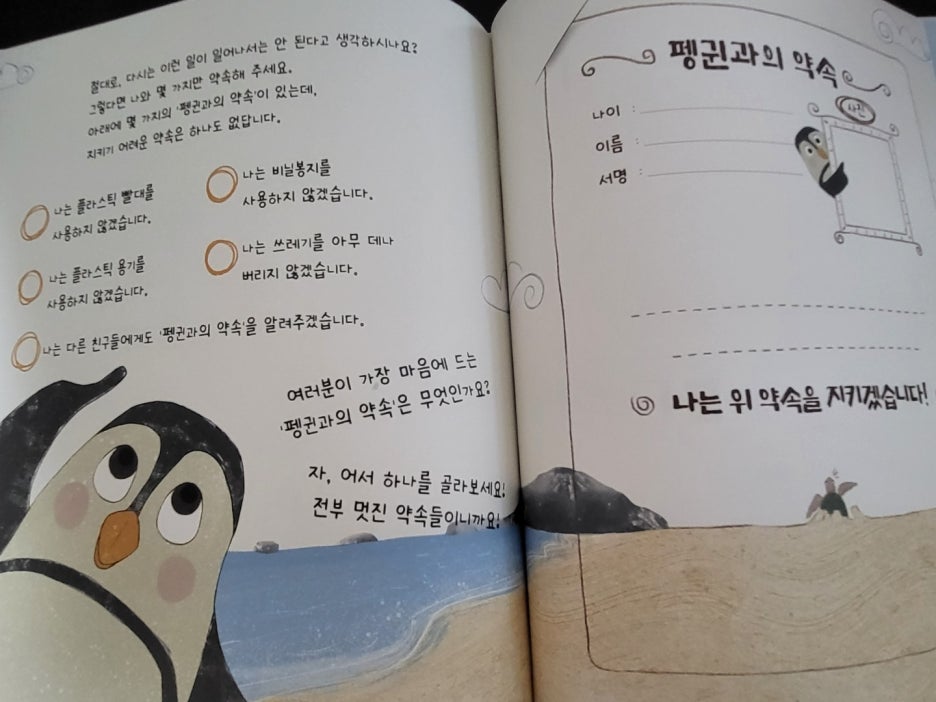 절대로, 다시는 이런 일이 일어나서는 안 된다고 생각하시나요?
그렇다면 나와 몇 가지만 약속해 주세요.
아래에 몇 가지의 '펭귄과의 약속'이 있는데,
지키기 어려운 약속은 하나도 없답니다.
나는 플라스틱 빨대를
사용하지 않겠습니다.
나는 비닐봉지를
사용하지 않겠습니다.
나는 플라스틱 용기를
사용하지 않겠습니다.
나는 쓰레기를 아무 데나
버리지 않겠습니다.
나는 다른 친구들에게도 '펭귄과의 약속'을 알려주겠습니다.
여러분이 가장 마음에 드는
'펭귄과의 약속'은 무엇인가요?
자, 어서 하나를 골라보세요!
전부 멋진 약속들이니까요!
펭귄과의 약속
나이 :
이름 :
서명 :
사진
나는 위 약속을 지키겠습니다!